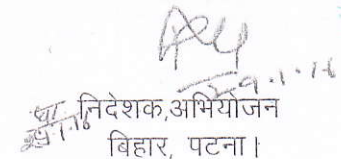 29.1.16
निदेशक,अभियोजन
बिहार, पटना।